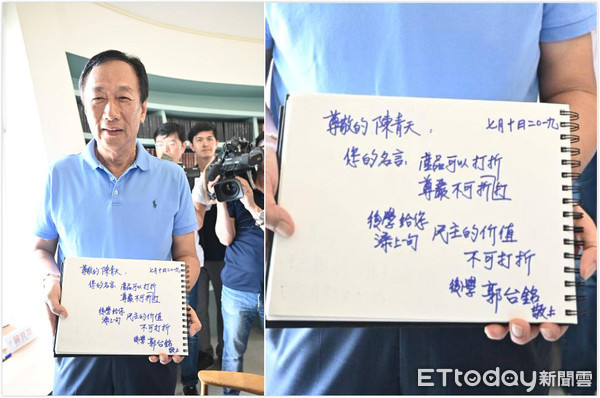 尊敬的 陳青天, 七月十日二〇一九
您的名言 產品可以打折
尊嚴不可折打
後學給你 民主的价值
添上一句
不可打折
後學 郭台銘
敬上
尊敬的 陳青天, 七月十日二〇一九
您的名言 產品可以打折
尊嚴不可折打
後學給你 民主的价值
添上一句
不可打折
後學 郭台銘
敬上
ETtoday新聞雲